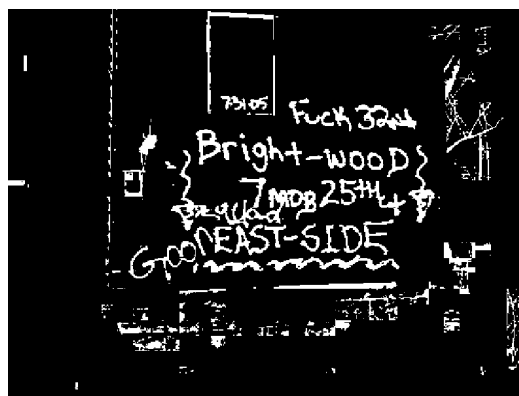 73105
Fuck 32nd
Bright-wooD
7 MOB 25th
Goon EAST-SIDE